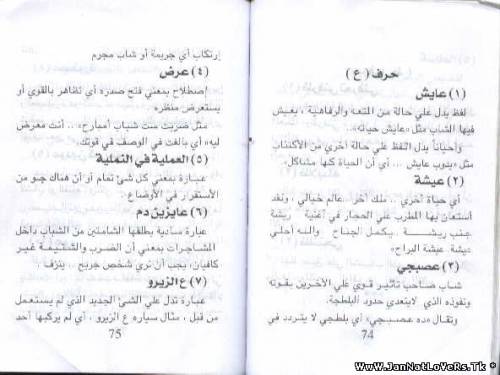 حرف ( ع )
(١) عايش
لفظ يدل علي حالة من المتعه والرفاهية ، يعيش
فيها الشاب مثل «عايش حياته»..
وأحياناً يدل اللفظ علي حالة أخري من الأكتئاب
مثل «يدوب عايش .. أي أن الحياة كلها مشاكل.
(٢) عيشة
أي حياة أخري .. ملك آخر.. عالم خيالي ، ولقد
أستعان بها المطرب علي الحجار في أغنية ريشة
جنب ريشة .. يكمل الجناح والله أحلي
عيشة عيشة البراح»
(٣) عصبجي
شاب صاحب تأثير قوي علي الآخرين بقوته
ونفوذه الذي لايتعدي حدود البلطجة.
وتقال «ده عصبجي» أي بلطجي لا يتردد في
74
إرتكاب أي جريمة أو شاب مجرم
(٤) عرض
إصطلاح بمعني فتح صدره أي تظاهر بالقوي أو
يستعرض منظره
مثل ضربت ست شباب أمبارح» .. أنت معرض
ليه» أي بالغت في الوصف في قوتك.
(٥) العملية في النملية
عبارة بمعني كل شئ تمام أو أن هناك جو من
الأستقرار في الأوضاع.
(٦) عايزين دم
عبارة سادية يطلقها الشامتين من الشباب داخل
المشاجرات بمعني أن الضرب والشتيمة غير
كافيان، يجب أن نري شخص جريح .. ينزف.
(٧) ع الزيرو
عبارة تدل علي الشئ الجديد الذي لم يستعمل
من قبل ، مثال سياره ع الزيرو ، أي لم يركبها أحد
75
WwW.JanNatLoVeRs.Tk *